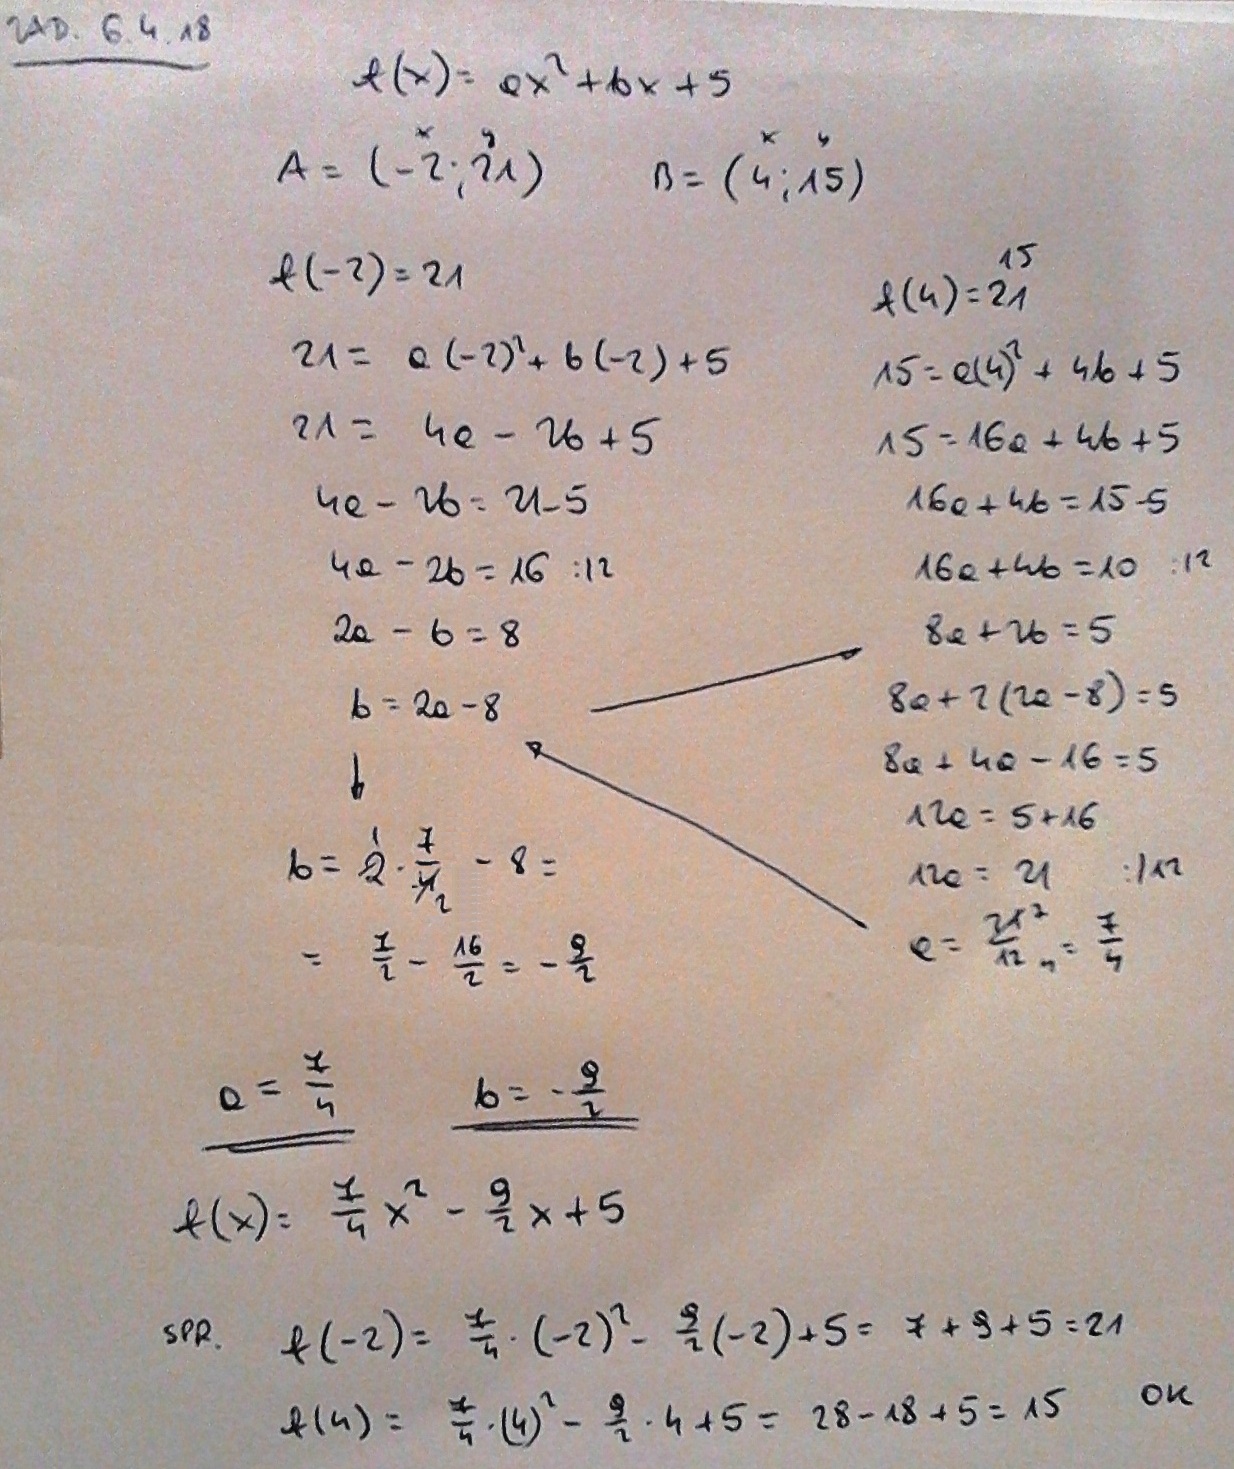 ZAD. 6.4.18
f(x) = ax² + bx + 5
x y x y
A = (-2; 21) B = (4; 15)
f(-2) = 21
21 = a(-2)² + b(-2) + 5
21 = 4a - 2b + 5
4a - 2b = 21 - 5
4a - 2b = 16 :12
2a - b = 8
b = 2a - 8
15
f(4) = 21
15 = a(4)² + 4b + 5
15 = 16a + 4b + 5
16a + 4b = 15 - 5
16a + 4b = 10 :12
8a + 2b = 5
8a + 2(2a - 8) = 5
8a + 4a - 16 = 5
12a = 5 + 16
12a = 21 :/12
a = 21/12 7 4 = 7/4
b = 2 1 · 7/4 2 - 8 =
= 7/2 - 16/2 = - 9/2
a = 7/4 b = - 9/2
f(x) = 7/4 x² - 9/2 x + 5
SPR. f(-2) = 7/4 · (-2)² - 9/2 (-2) + 5 = 7 + 9 + 5 = 21
f(4) = 7/4 · (4)² - 9/2 · 4 + 5 = 28 - 18 + 5 = 15 OK